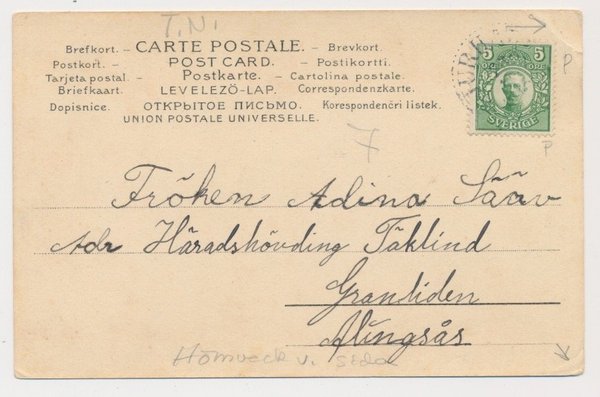 T.N.
Brefkort. – CARTE POSTALE. – Brevkort.
Postkort. – POST CARD. – Postikortti.
Tarjeta postal. – Postkarte. – Cartolina postale.
Briefkaart. LEVELEZÖ-LAP. Correspondenzkarte.
Dopisnice. ОТКРЫТОЕ ПИСЬМО. Korespondenčri listek.
UNION POSTALE UNIVERSELLE.
5 5
SVERIGE
P
P
7
Fröken Adina Sääv
Adr Häradshövding Täklind
Granliden
Alingsås
v. sida